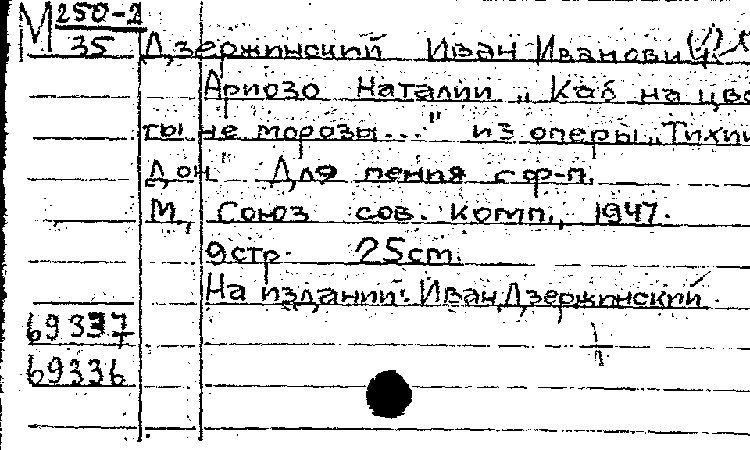 М 250-2
35
Дзержинский Иван Иванович
Ариозо Наталии „Каб на цве
ты не морозы..." из оперы „Тихий
Дон" Для пения с ф-п.
М., Союз сов. комп., 1947.
9стр. 25cm.
На издании: Иван Дзержинский.
69337
69336